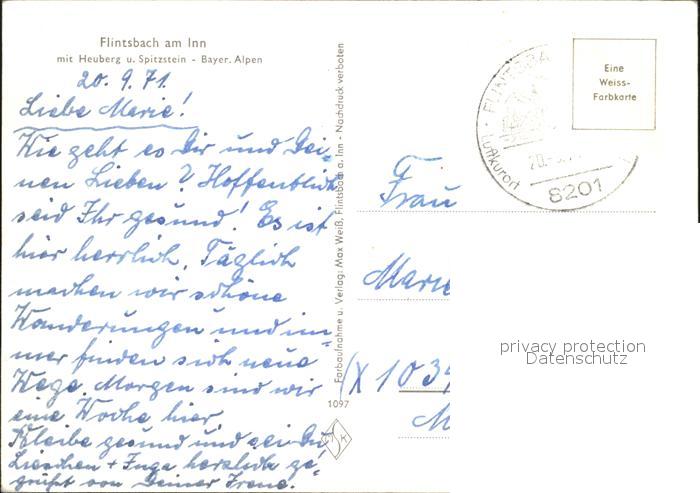 Flintsbach am Inn
mit Heuberg u. Spitzstein - Bayer. Alpen
20. 9. 71.
Liebe Marie!
Wie geht es Dir und Dei-
nen Lieben? Hoffentlich
seid Ihr gesund! Es ist
hier herrlich. Täglich
machen wir schöne
Wanderungen und im-
mer finden sich neue
Wege. Morgen sind wir
eine Woche hier
Bleibe gesund und sei Du
Lieschen + Inge herzlich ge-
grüßt von Deiner Irene.
Farbaufnahme u. Verlag: Max Weiß, Flintsbach a. Inn - Nachdruck verboten
1097
FLINTSBA
Luftkurort
20.
8201
Eine
Weiss-
Farbkarte
Frau
Marie
(X 103
M
privacy protection
Datenschutz